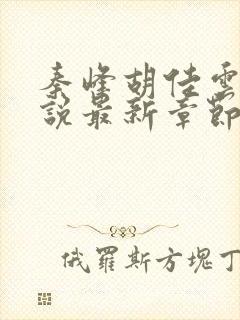 秦峰胡佳雲
說最新章節
俄羅斯方塊丁